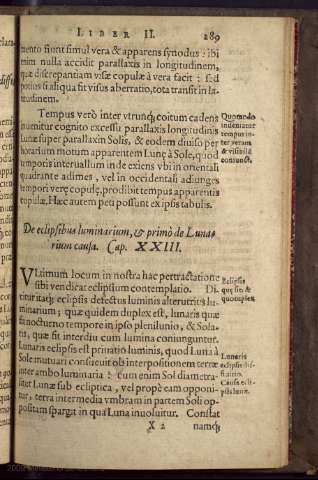 LIBER II. 289
mento fiunt simul vera & apparens synodus: ibi
enim nulla accidit parallaxis in longitudinem,
quæ discrepantiam visæ copulæ à vera facit: sed
potius si aliqua fit visus aberratio, tota transit in la-
titudinem.
Tempus verò inter vtrunq; coitum cadens
numitur cognito excessu parallaxis longitudinis
Lunæ super parallaxin Solis, & eodem diuiso per
horarium motum apparentem Lunę à Sole, quod
temporis interuallum inde exiens vbi in orientali
quadrante adimes, vel in occidentali adiunges
tempori verę copulę, prodibit tempus apparentis
copulæ. Hæc autem peti possunt ex ipsis tabulis.
Quomodo
inueniatur
tempus in-
ter veram
& visibilē
coniunct.
De eclipsibus luminarium, & primò de Luna-
rium causa. Cap. XXIII.
VLtimum locum in nostra hac pertractatione
sibi vendicat eclipsium contemplatio. Di-
citur itaq; eclipsis defectus luminis alterutrius lu-
minarium; quæ quidem duplex est, lunaris quæ
fit nocturno tempore in ipso plenilunio, & Sola-
ris, quæ fit interdiu cum lumina coniunguntur.
Lunaris eclipsis est priuatio luminis, quod Luna à
Sole mutuari consueuit ob interpositionem terræ
inter ambo luminaria: cum enim Sol diametra-
liter Lunæ sub ecliptica, vel propè eam opponi-
tur, terra intermedia vmbram in partem Soli op-
positam spargit in quā Luna inuoluitur. Constat
Eclipsis
quę sit, &
quotuplex
Lunaris
eclipsis dif-
finitio.
Causa ecli-
psis lunæ.
X 2 namq;